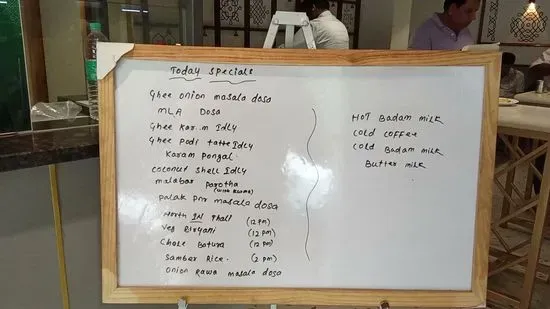 Today Specials
Ghee onion masala dosa
MLA Dosa
Ghee Kar..m Idly
Ghee Podi tatte Idly
Karam Pongal.
Coconut Shell Idly
malabar Parotha
(with kurma)
Palak Pnr masala dosa
North IN Thali (12 Pm)
Veg Biryani (12 Pm)
Chole Batura (12 Pm)
Sambar Rice. (2 Pm)
Onion Rawa masala dosa
HOT Badam milk
Cold Coffee
Cold Badam milk
Butter milk